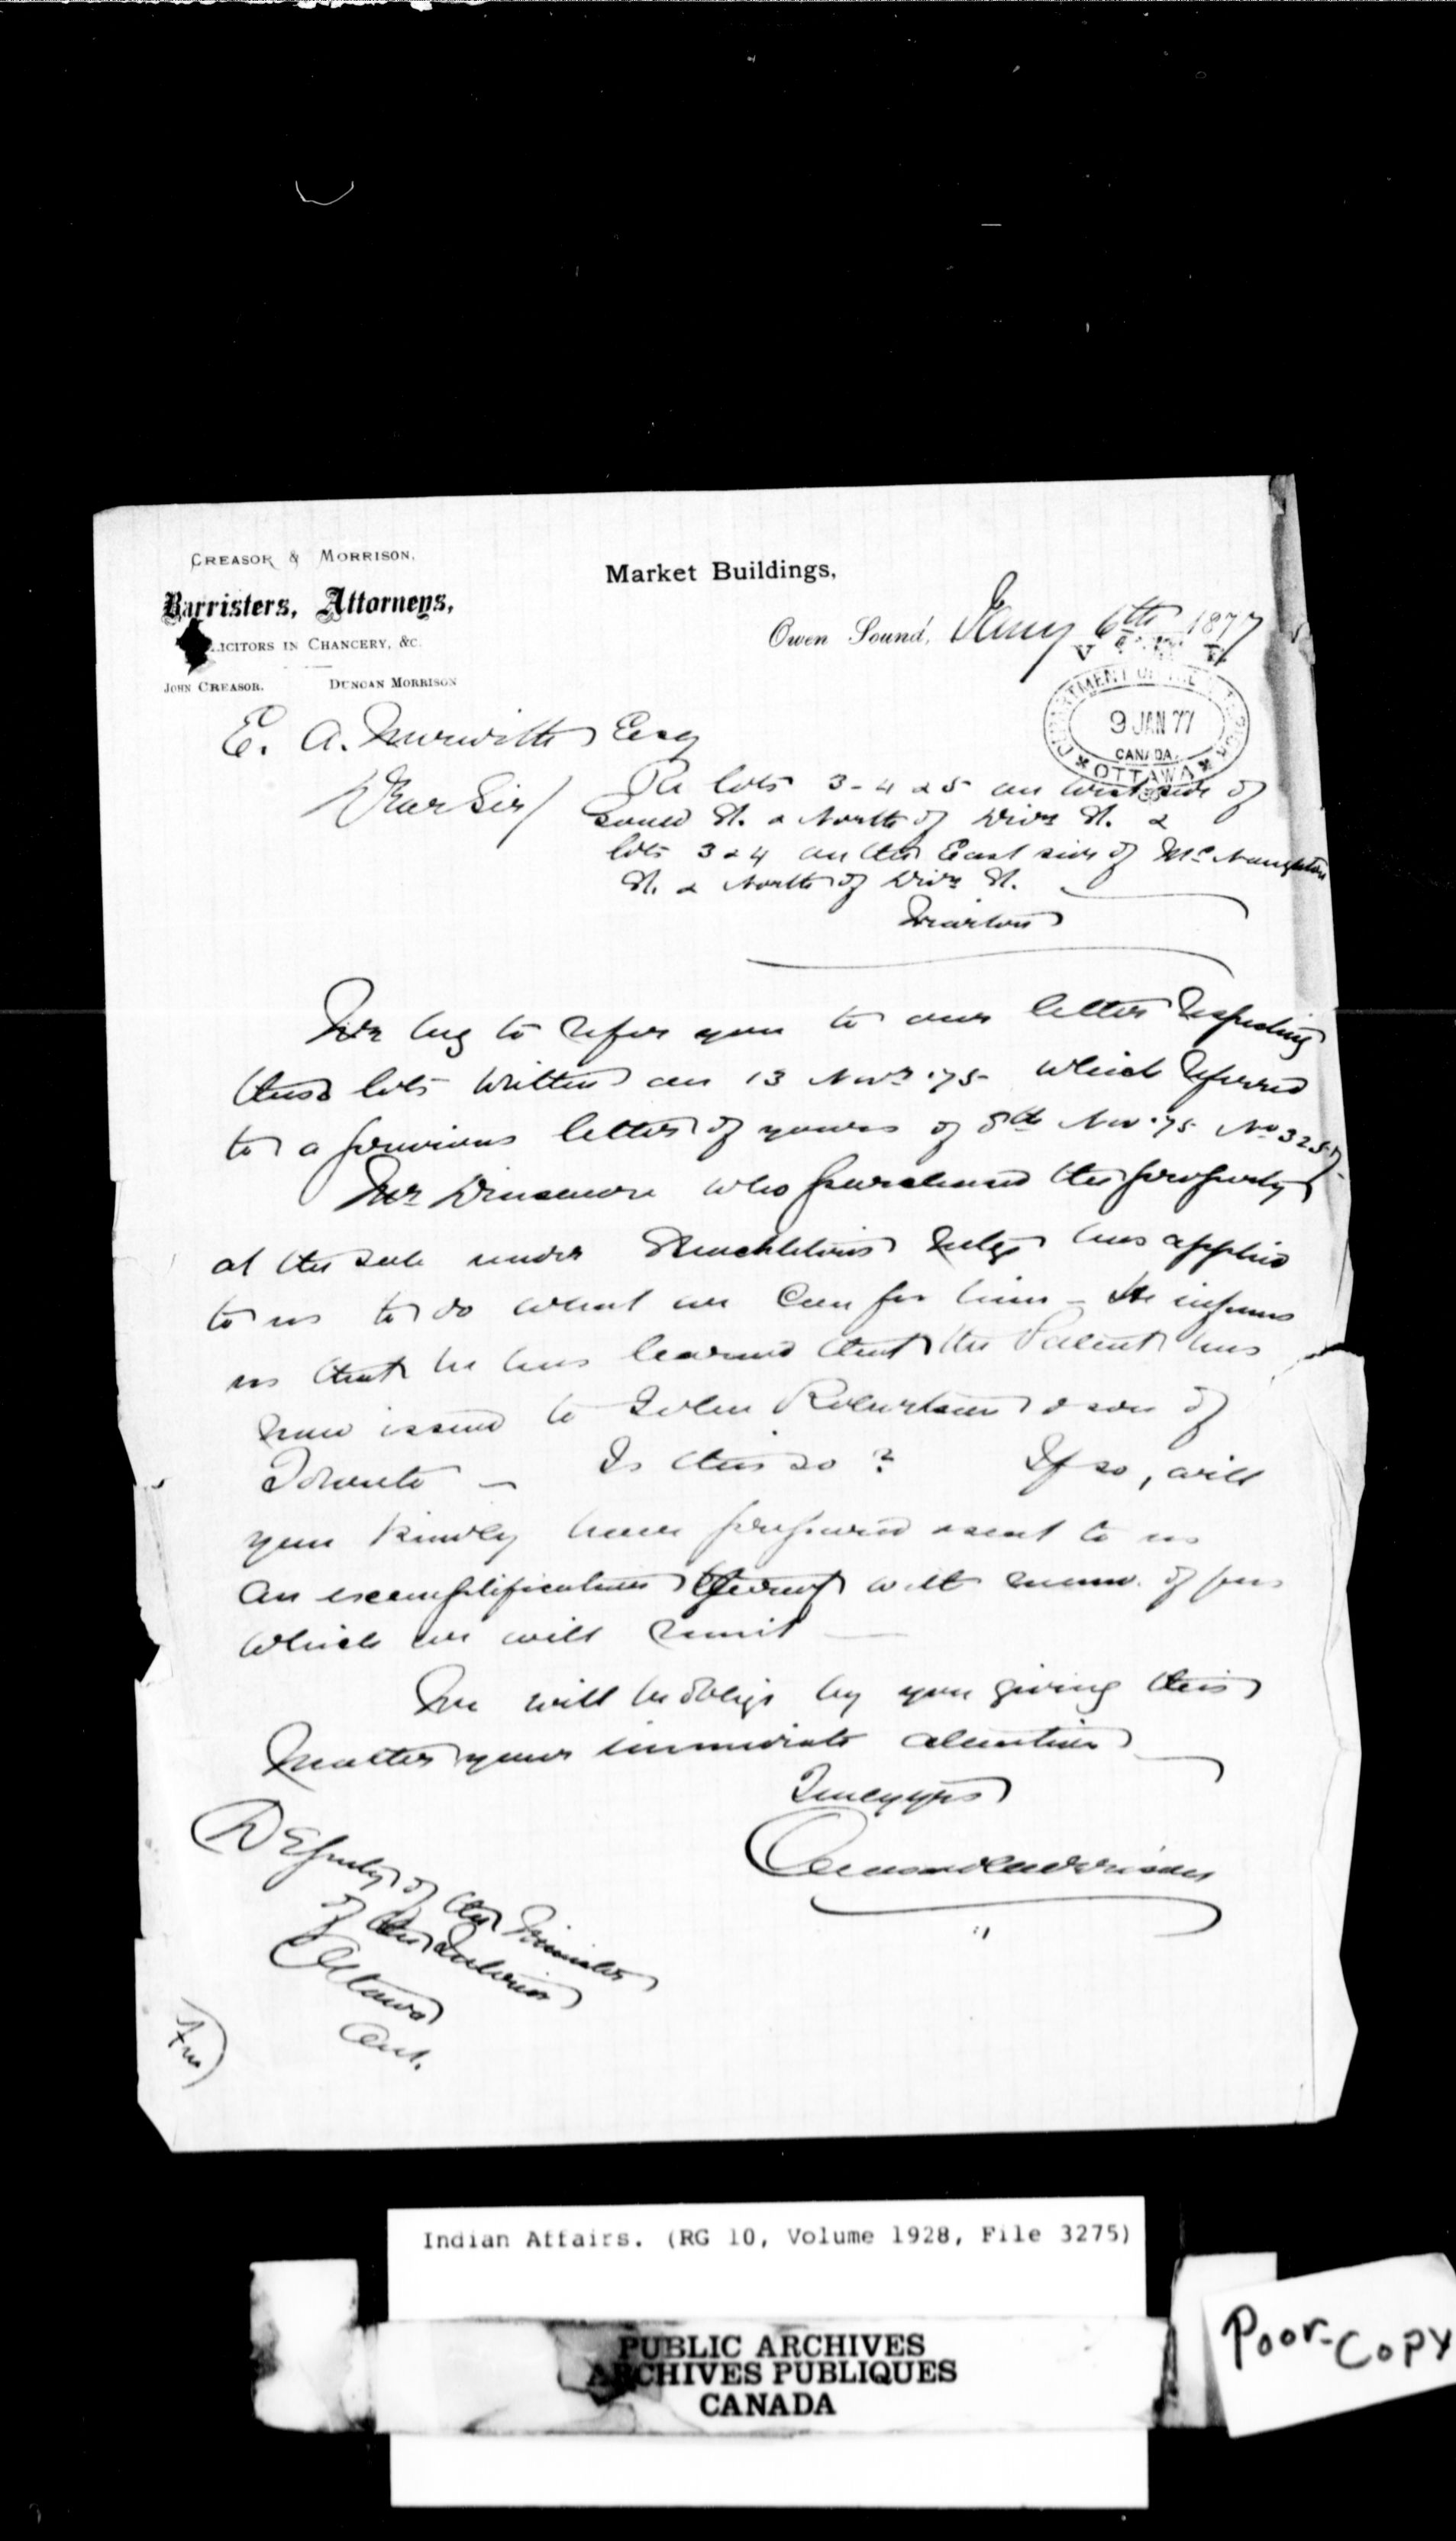 CREASOR & MORRISON.
Barristers, Attorneys,
LICITORS IN CHANCERY, &C.
JOHN CREASOR. DUNCAN MORRISON
Market Buildings,
Owen Sound, Jany 6th 1877
DEPARTMENT OF THE INTERIOR
9 JAN 77
CANADA.
OTTAWA
E. A. Meredith Esq
Dear Sir/ Re lots 3-4 & 5 on West side of
Gould St. & North of Divn St. &
lots 3 & 4 on the East side of McNaughton
St. & North of Divn St.
Wiarton
We beg to refer you to our letter respecting
these lots written on 13 Novr. '75 which referred
to a previous letter of yours of 8th Nov. 75 No 3257
Mr Dinsmore who purchased the property
at the sale under mtge has applied
to us to do what we can for him - He informs
us that he has learned that the Patent has
now issued to John Robertson & son of
Toronto - Is this so? If so, will
you kindly have prepared & sent to us
an exemplification thereof with memo. of fees
which we will remit
We will be oblige by you giving this
matter your immediate attention
Truly yrs
Creasor & Morrison
Deputy of the Minister
of the Interior
Ottawa
Ont.
Indian Affairs. (RG 10, Volume 1928, File 3275)
PUBLIC ARCHIVES
ARCHIVES PUBLIQUES
CANADA
Poor-Copy